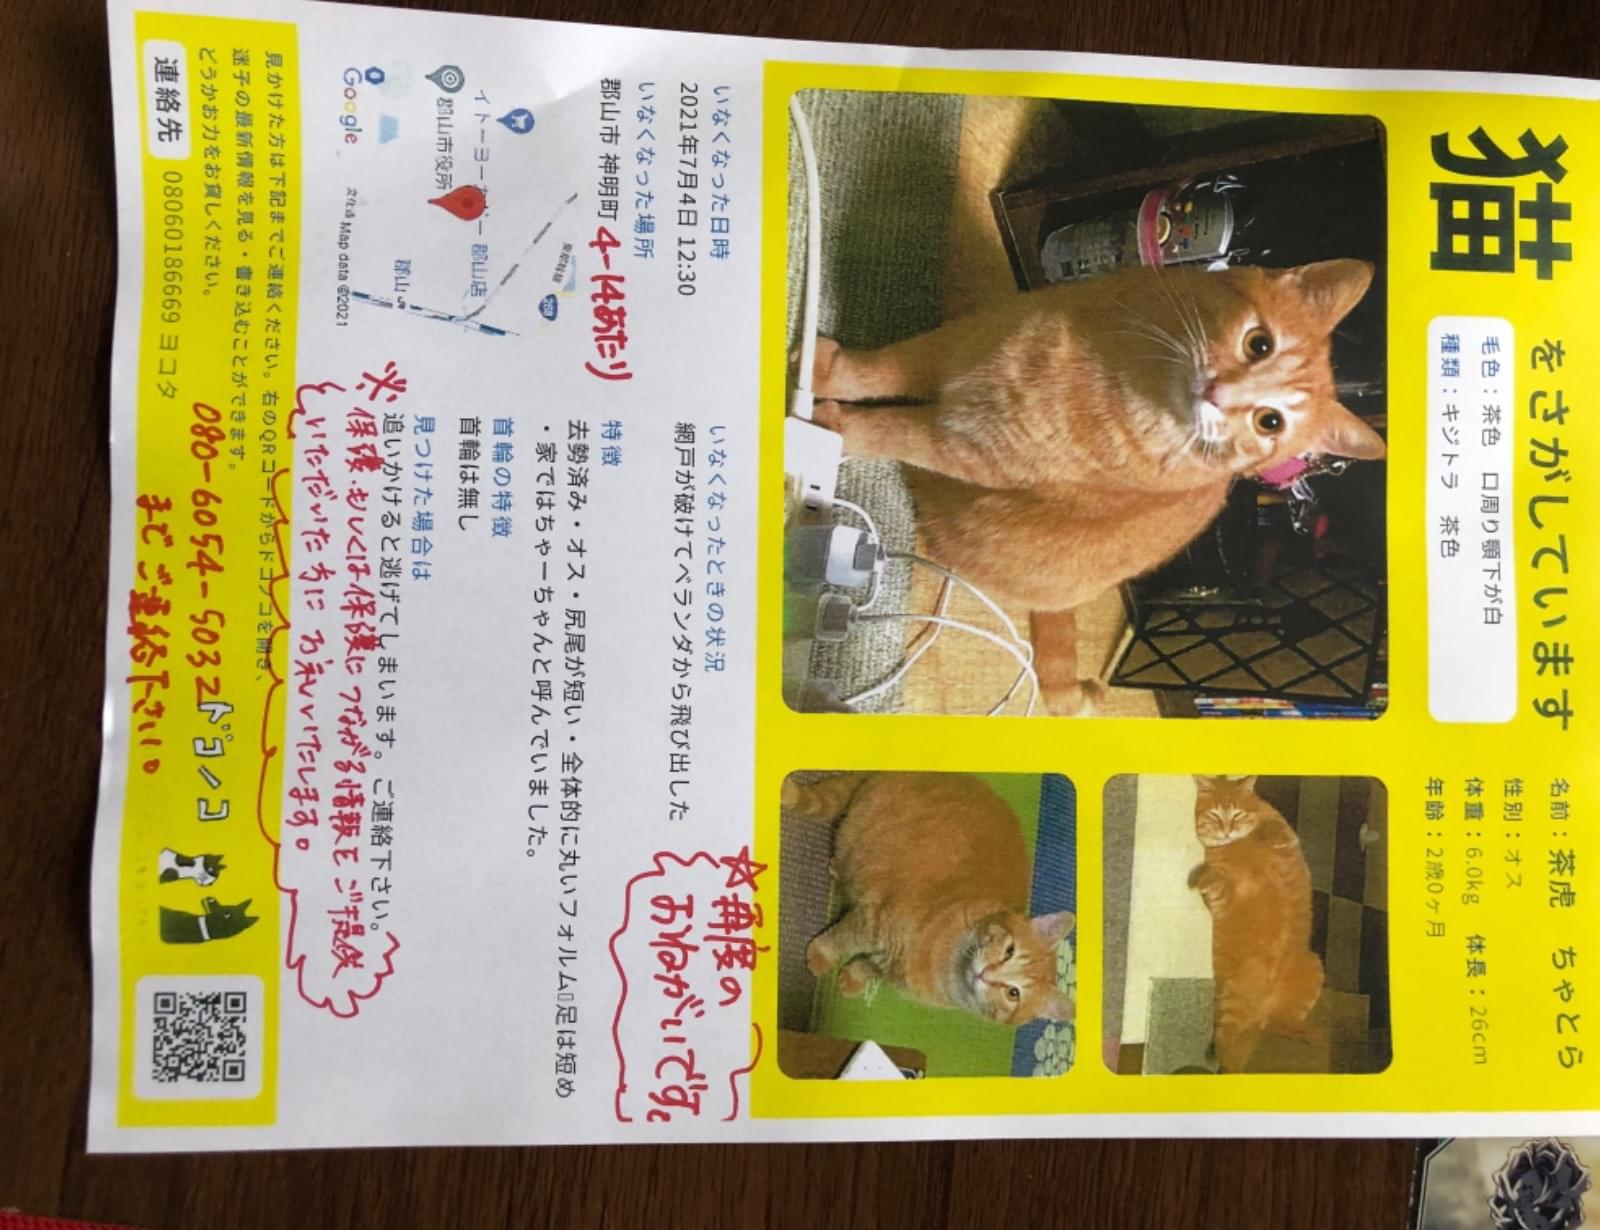 猫
をさがしています
毛色：茶色　口周り顎下が白
種類：キジトラ　茶色
名前：茶虎　ちゃとら
性別：オス
体重：6.0kg　体長：26cm
年齢：2歳0ヶ月
いなくなった日時
2021年7月4日 12:30
いなくなった場所
郡山市 神明町 4-14あたり
イトーヨーカドー 郡山店
郡山市役所
郡山
288
Google
Map data ©2021
いなくなったときの状況
網戸が破けてベランダから飛び出した
☆再度の
おねがいです。
特徴
去勢済み・オス・尻尾が短い・全体的に丸いフォルム▯足は短め
・家ではちゃーちゃんと呼んでいました。
首輪の特徴
首輪は無し
見つけた場合は
追いかけると逃げてしまいます。ご連絡下さい。
※保護・もしくは保護につながる情報をご提供
いただいた方にお礼いたします。
見かけた方は下記までご連絡ください。右のQRコードからドコノコを開き、
迷子の最新情報を見る・書き込むことができます。
どうかお力をお貸しください。
連絡先
08060186669 ヨコタ
080-6054-5032
までご連絡下さい。
ドコノコ